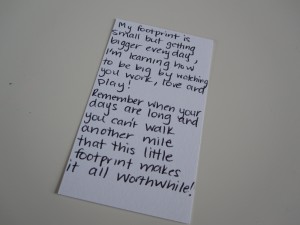 My footprint is
small but getting
bigger everyday,
I'm learning how
to be big by watching
you work, love and
play!
Remember when your
days are long and
you can't walk
another mile
that this little
footprint makes
it all worthwhile!